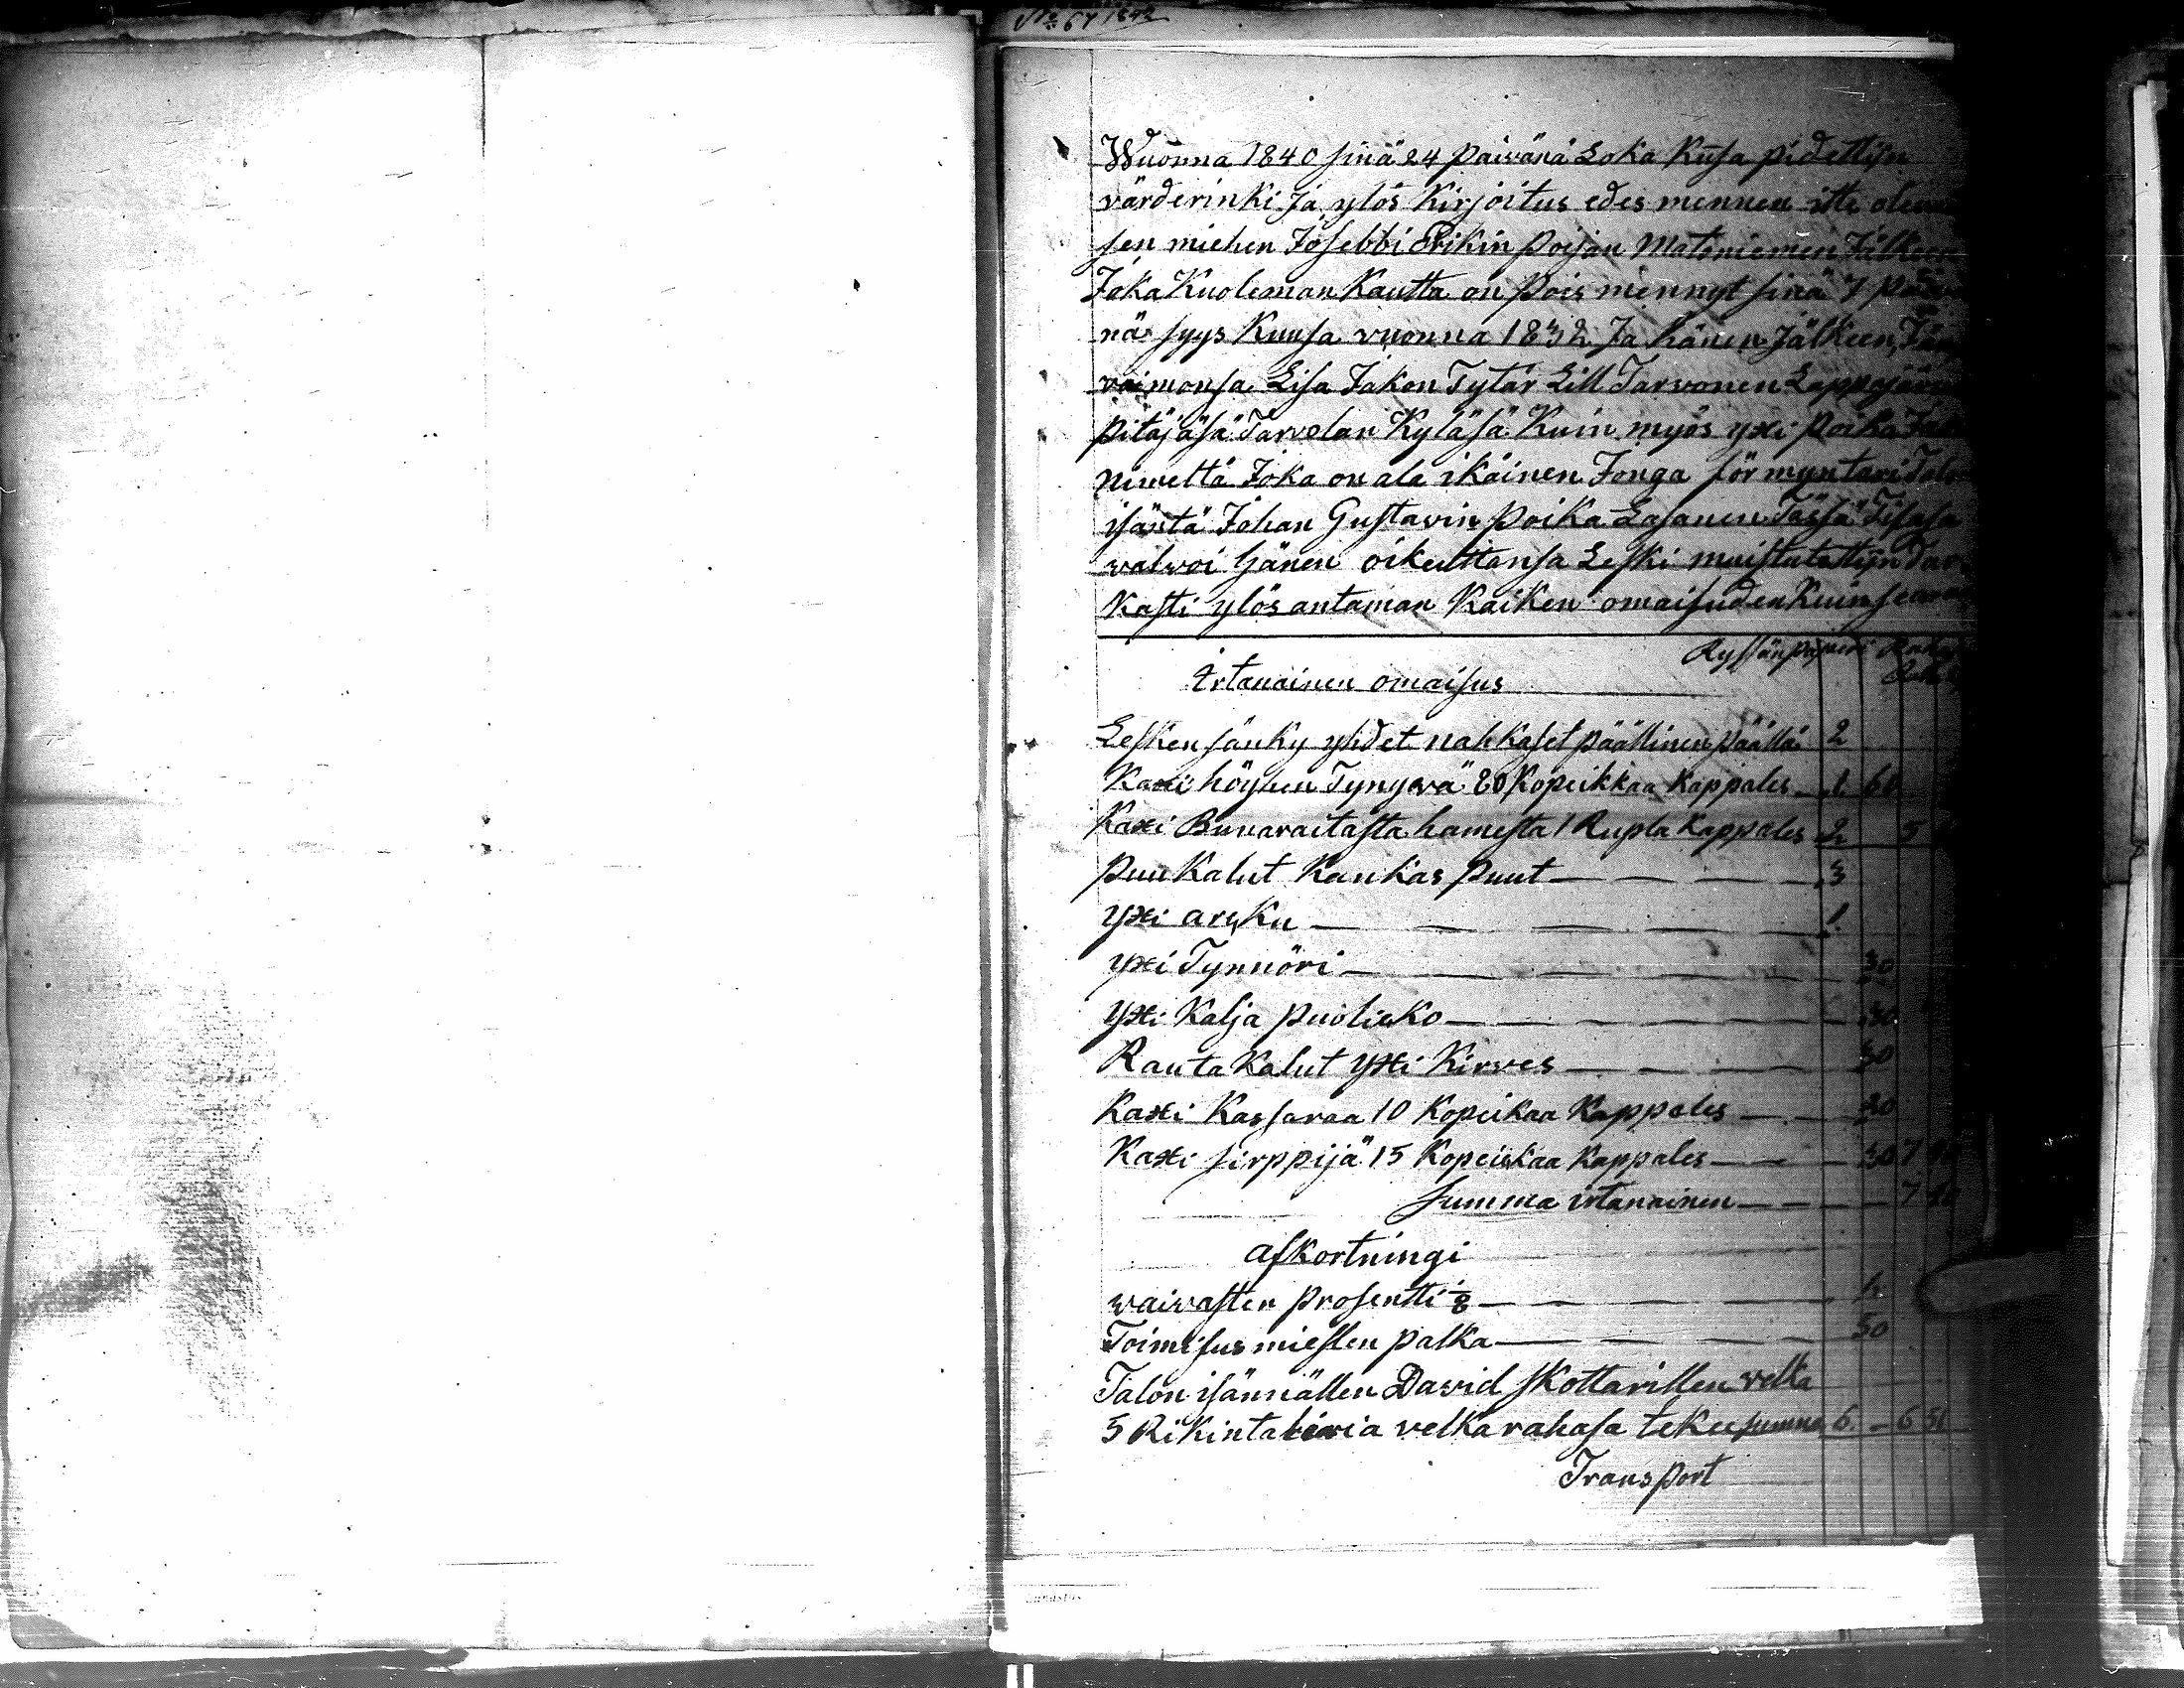 No 67 1842
Wuonna 1840 sinä 24 päivänä Loka Kusa pidettijn
värderinki Ja ylös Kirjoitus edes mennen itte
sen miehen Josebbi Erikin poijan Matoniemen Jälkeen
Joka Kuoleman Kautta on pois mennyt sinä 7
nä syys Kuusa vuonna 1832 Ja hänen Jälkeen
vaimonsa Lisa Jakon Tytär Lill Tarvonen
pitäjäsä Tarvolan Kyläsä Kuin myös yxi poika
nimeltä Joka on ala ikäinen Jonga förmyntari
isäntä Johan Gustavin poika Lasanen Tässä Tilasa
valvoi hänen oikeuttansa Leski muistutettijn Tar
Kasti ylös antaman Kaiken omaisuden Kuin
Ryssän
irtanainen omaisus
Lesken sänky yhdet nahkaset päällinen päällä 2
Kaxi höyhen Tynyvä 80 Kopeikkaa Kappales 1 60
Kaxi hamesta 1 Rupla Kappales 2 5
puu Kalut Kankas puut 3
yxi arkku 1
yxi Tynnöri 30
yxi Kalja puolikko 30
Rauta Kalut yxi Kirves 30
Kaxi Kassaraa 10 Kopeikaa Kappales 20
Kaxi sirppijä 15 Kopeiskaa Kappales 30 7
Summa irtanainen 7
afkortningi
waivasten prosentti 1/8
Toimisus miesten palka 50
Talon isännällen David Skottarillen velka
5 Rikintaleria velka rahasa tekee summa 6 - 6 50
Transport